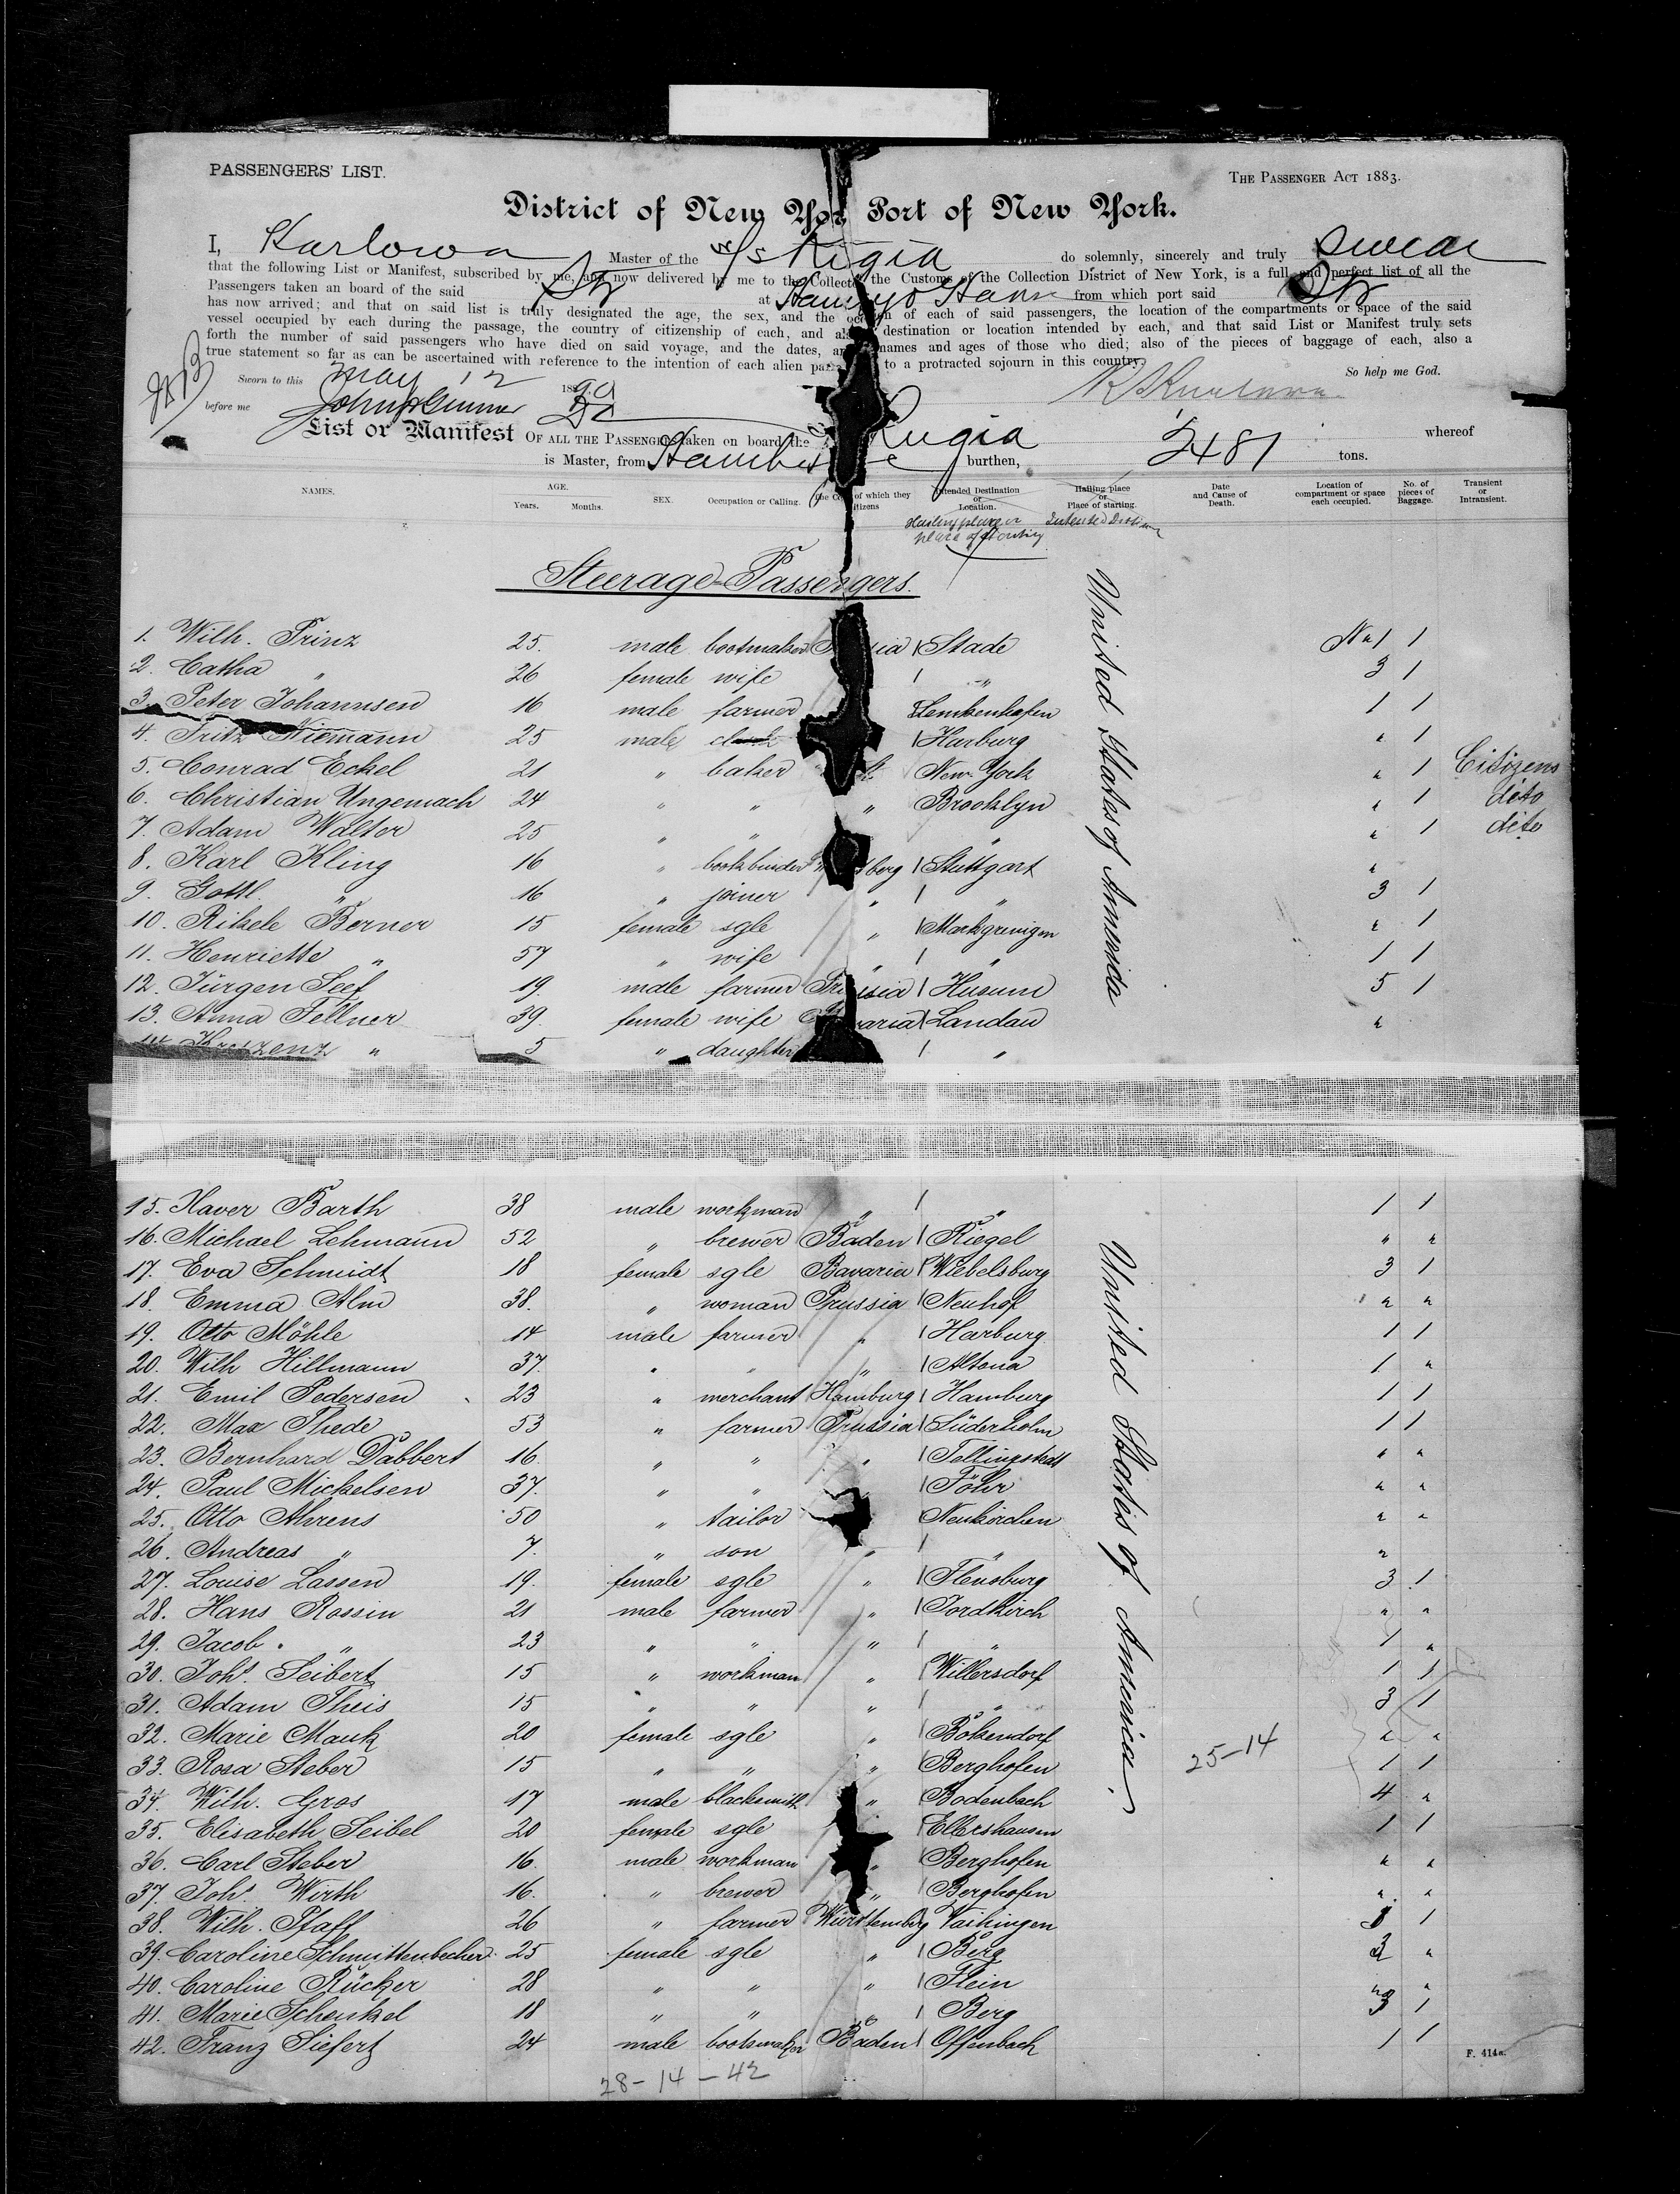 PASSENGERS' LIST.
THE PASSENGER ACT 1883.
District of New Yor Port of New York.
I, Karlowa Master of the S/S Rugia do solemnly, sincerely and truly swear
that the following List or Manifest, subscribed by me, and now delivered by me to the Collector the Customs of the Collection District of New York, is a full and perfect list of all the
Passengers taken on board of the said Str at from which port said Str
has now arrived; and that on said list is truly designated the age, the sex, and the of each of said passengers, the location of the compartments or space of the said
vessel occupied by each during the passage, the country of citizenship of each, and destination or location intended by each, and that said List or Manifest truly sets
forth the number of said passengers who have died on said voyage, and the dates, names and ages of those who died; also of the pieces of baggage of each, also a
true statement so far as can be ascertained with reference to the intention of each alien to a protracted sojourn in this country.
So help me God.
Sworn to this May 12 1890
before me
List or Manifest OF ALL THE PASSENGERS taken on board the Rugia whereof
is Master, from burthen, 2481 tons.
NAMES.
AGE.
Years. Months.
SEX.
Occupation or Calling.
of which they
Intended Destination or Location.
Hailing place or Place of starting.
Date and Cause of Death.
Location of compartment or space each occupied.
No. of pieces of Baggage.
Transient or Intransient.
Hailing place or Intended Destination
place of starting
Steerage-Passengers.
United States of America
1. Wilh. Prinz 25. male bootmaker Stade No 1 1
2. Catha " 26 female wife " 3 1
3. Peter Johannsen 16 male farmer Lemkenhafen 1 1
4. Fritz Niemann 25 male clerk Harburg " 1
5. Conrad Eckel 21 " baker New-York " 1 Citizens
6. Christian Ungemach 24 " " " Brooklyn " 1 dito
7. Adam Walter 25 " " " " 1 dito
8. Karl Kling 16 " bookbinder berg Stuttgart "
9. Gottl. " 16 " joiner " " 3 1
10. Rikele Berner 15 female sgle " Markgröningen " 1
11. Henriette " 57 " wife " " 1 1
12. Jürgen Seef 19. male farmer Prussia Husum 5 1
13. Anna Fellner 39. female wife Bavaria Landau "
14. " 5 " daughter "
15. Xaver Barth 38 male workman " " 1 1
16. Michael Lehmann 52 " brewer Baden Riegel " "
17. Eva Schmidt 18 female sgle Bavaria Wiebelsburg 3 1
18. Emma Alm 38. " woman Prussia Neuhof " "
19. Otto Möhle 14 male farmer " Harburg 1 1
20. Wilh Hillmann 37. " " " Altona 1 "
21. Emil Pedersen 23 " merchant Hamburg Hamburg 1 1
22. Max Thede 53 " farmer Prussia Süderholm 1 1
23. Bernhard Dabbert 16. " " " Tellingstedt " "
24. Paul Mickelsen 37. " " Föhr " "
25. Otto Ahrens 50 " tailor Neukirchen " "
26. Andreas " 7. " son " " "
27. Louise Lassen 19. female sgle " Flensburg 3 1
28. Hans Rossin 21 male farmer " Jordkirch " "
29. Jacob " 23 " " " " 1 "
30. Johs. Seibert 15 " workman " Willersdorf 1 1
31. Adam Theis 15 " " " " 3 1
32. Marie Mauk 20 female sgle " Bökendorf " "
33. Rosa Steber 15 " " " Berghofen 25-14 1 1
34. Wilh. Gros 17 male blacksmith " Bodenbach 4 "
35. Elisabeth Seibel 20 female sgle Ellershausen 1 1
36. Carl Steber 16. male workman " Berghofen " "
37. Johs. Wirth 16. " brewer " Berghofen " "
38. Wilh. Pfaff 26 " farmer Württemberg Vaihingen 1
39. Caroline Schmittenbecher 25 female sgle " Berg "
40. Caroline Rücker 28 " " " Flein " "
41. Marie Schenkel 18 " " " Berg 3 1
42. Franz Siefert 24 male bootmaker Baden Offenbach 1 1
United States of America.
F. 414a.
28-14-42